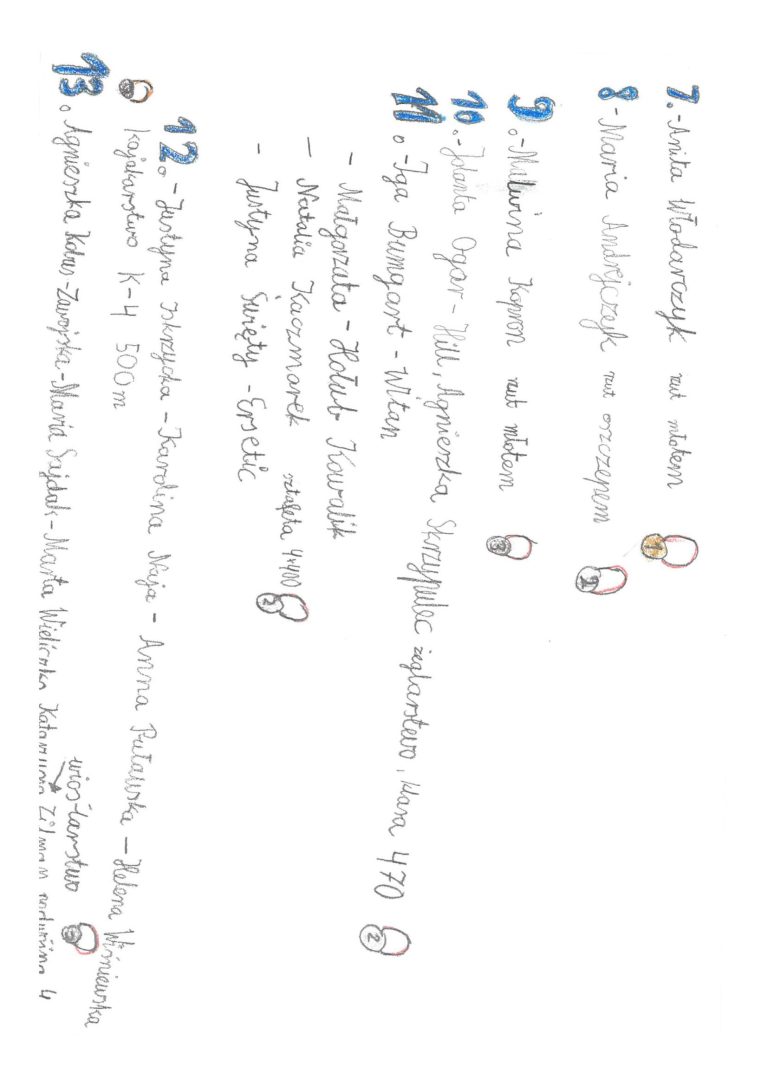 7.-Anita Włodarczyk rzut młotem 1
8-Maria Andrejczyk rzut oszczepem 2
9.-Malwina Kopron rzut młotem 3
10.-Jolanta Ogar-Hill, Agnieszka Skrzypulec żeglarstwo, klasa 470 2
11.-Iga Bumgart-Witan
- Małgorzata-Hołub-Kowalik
- Natalia Kaczmarek sztafeta 4x400 2
- Justyna Święty-Ersetic
12.-Justyna Iskrzycka-Karolina Naja-Anna Puławska-Helena Wiśniewska
kajakarstwo K-4 500m
wioślarstwo 3
13.Agnieszka Kobus-Zawojska-Maria Sajdak-Marta Wieliczko Katarzyna Zilman podwójna 4